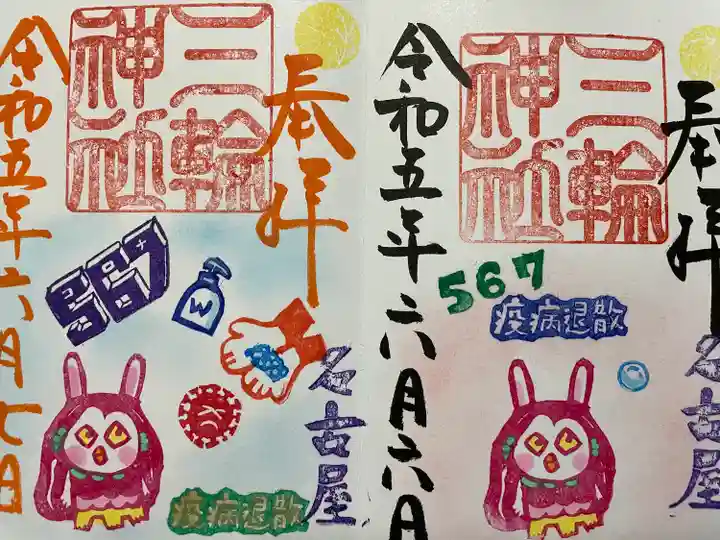 奉拝
三輪
神社
567
疫病退散
名古屋
令和五年六月六日
奉拝
三輪
神社
W
疫病退散
名古屋
令和五年六月七日